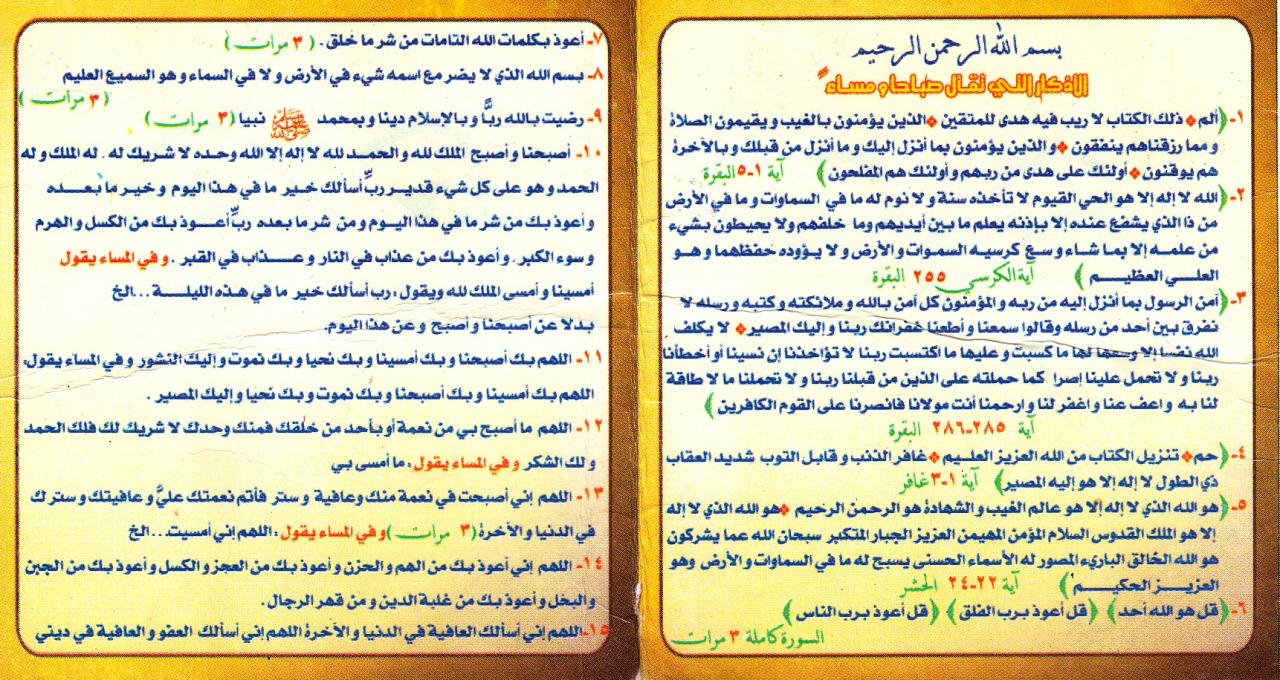 بسم الله الرحمن الرحيم
الاذكار التي تقال صباحا و مساءً
١- ﴿ألم * ذلك الكتاب لا ريب فيه هدى للمتقين * الذين يؤمنون بالغيب و يقيمون الصلاة
و مما رزقناهم ينفقون * و الذين يؤمنون بما أنزل إليك و ما أنزل من قبلك و بالآخرة
هم يوقنون * أولئك على هدى من ربهم و أولئك هم المفلحون﴾ آية ١-٥ البقرة
٢- ﴿الله لا إله إلا هو الحي القيوم لا تأخذه سنة و لا نوم له ما في السماوات و ما في الأرض
من ذا الذي يشفع عنده إلا بإذنه يعلم ما بين أيديهم وما خلفهم ولا يحيطون بشيء
من علمه إلا بما شاء و سع كرسيه السموات و الأرض و لا يؤوده حفظهما و هو
العلي العظيم﴾ آية الكرسي ٢٥٥ البقرة
٣- ﴿آمن الرسول بما أنزل إليه من ربه و المؤمنون كل آمن بالله و ملائكته و كتبه و رسله لا
نفرق بين أحد من رسله وقالوا سمعنا و أطعنا غفرانك ربنا و إليك المصير * لا يكلف
الله نفسا إلا وسعها لها ما كسبت و عليها ما اكتسبت ربنا لا تؤاخذنا إن نسينا أو أخطأنا
ربنا و لا تحمل علينا إصرا كما حملته على الذين من قبلنا ربنا و لا تحملنا ما لا طاقة
لنا به و اعف عنا و اغفر لنا و ارحمنا أنت مولانا فانصرنا على القوم الكافرين﴾
آية ٢٨٥-٢٨٦ البقرة
٤- ﴿حم * تنزيل الكتاب من الله العزيز العليم * غافر الذنب و قابل التوب شديد العقاب
ذي الطول لا إله إلا هو إليه المصير﴾ آية ١-٣ غافر
٥- ﴿هو الله الذي لا إله إلا هو عالم الغيب و الشهادة هو الرحمن الرحيم * هو الله الذي لا إله
إلا هو الملك القدوس السلام المؤمن المهيمن العزيز الجبار المتكبر سبحان الله عما يشركون
هو الله الخالق الباريء المصور له الأسماء الحسنى يسبح له ما في السماوات و الأرض وهو
العزيز الحكيم﴾ آية ٢٢-٢٤ الحشر
٦- ﴿قل هو الله أحد﴾ ﴿قل أعوذ برب الفلق﴾ ﴿قل أعوذ برب الناس﴾
السورة كاملة ٣ مرات
٧- أعوذ بكلمات الله التامات من شر ما خلق . (٣ مرات)
٨- بسم الله الذي لا يضر مع اسمه شيء في الأرض و لا في السماء و هو السميع العليم
(٣ مرات)
٩- رضيت بالله ربًّا و بالإسلام دينا و بمحمد ﷺ نبيا (٣ مرات)
١٠- أصبحنا و أصبح الملك لله و الحمد لله لا إله إلا الله وحده لا شريك له . له الملك و له
الحمد و هو على كل شيء قدير ربِّ أسألك خير ما في هذا اليوم و خير ما بعده
و أعوذ بك من شر ما في هذا اليوم و من شر ما بعده ربِّ أعوذ بك من الكسل و الهرم
و سوء الكبر . و أعوذ بك من عذاب في النار و عذاب في القبر . و في المساء يقول
أمسينا و أمسى الملك لله ويقول : رب أسألك خير ما في هذه الليلة ...الخ
بدلا عن أصبحنا و أصبح و عن هذا اليوم.
١١- اللهم بك أصبحنا و بك أمسينا و بك نحيا و بك نموت و إليك النشور و في المساء يقول:
اللهم بك أمسينا و بك أصبحنا و بك نموت و بك نحيا و إليك المصير .
١٢- اللهم ما أصبح بي من نعمة أو بأحد من خلقك فمنك وحدك لا شريك لك فلك الحمد
و لك الشكر و في المساء يقول : ما أمسى بي
١٣- اللهم إني أصبحت في نعمة منك وعافية و ستر فأتم نعمتك عليَّ و عافيتك و سترك
في الدنيا و الآخرة (٣ مرات) و في المساء يقول : اللهم إني أمسيت...الخ
١٤- اللهم إني أعوذ بك من الهم و الحزن و أعوذ بك من العجز و الكسل و أعوذ بك من الجبن
والبخل و أعوذ بك من غلبة الدين و من قهر الرجال.
١٥- اللهم إني أسألك العافية في الدنيا و الآخرة اللهم إني أسألك العفو و العافية في ديني